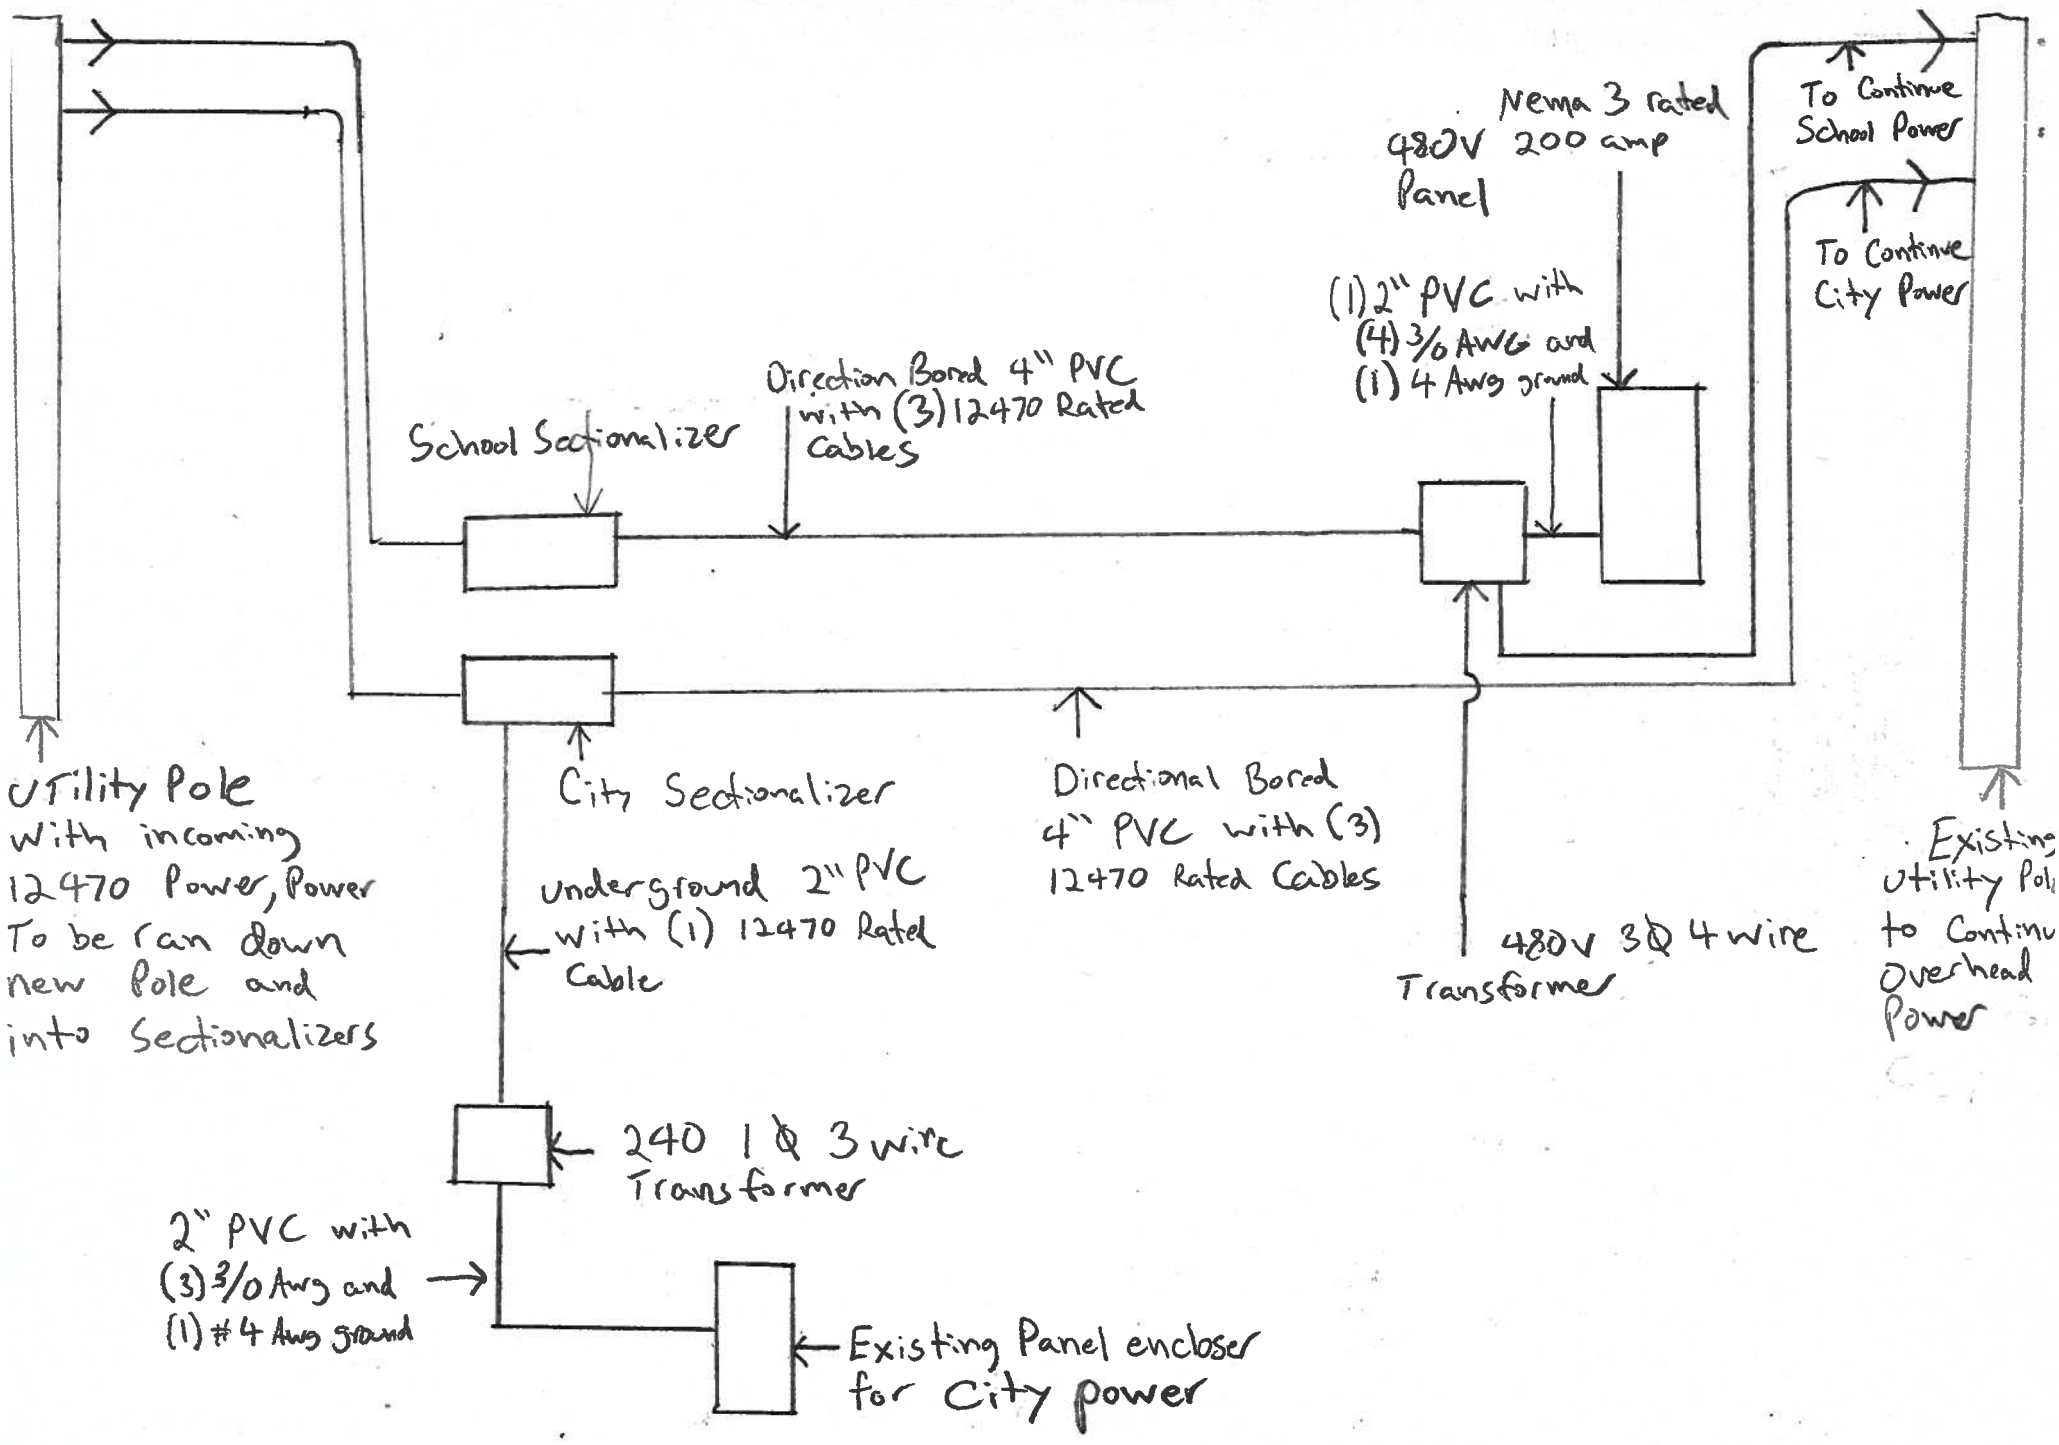 Nema 3 rated
480V 200 amp
Panel
To Continue
School Power
To Continue
City Power
(1) 2" PVC with
(4) 3/0 AWG and
(1) 4 Awg ground
Direction Bored 4" PVC
with (3) 12470 Rated
Cables
School Sectionalizer
UTility Pole
With incoming
12470 Power, Power
To be ran down
new Pole and
into Sectionalizers
City Sectionalizer
Directional Bored
4" PVC with (3)
12470 Rated Cables
underground 2" PVC
with (1) 12470 Rated
Cable
480V 3Ø 4 wire
Transformer
Existing
Utility Pole
to Continu
Overhead
Power
240 1 Ø 3 wire
Transformer
2" PVC with
(3) 3/0 Awg and
(1) #4 Awg ground
Existing Panel encloser
for City power